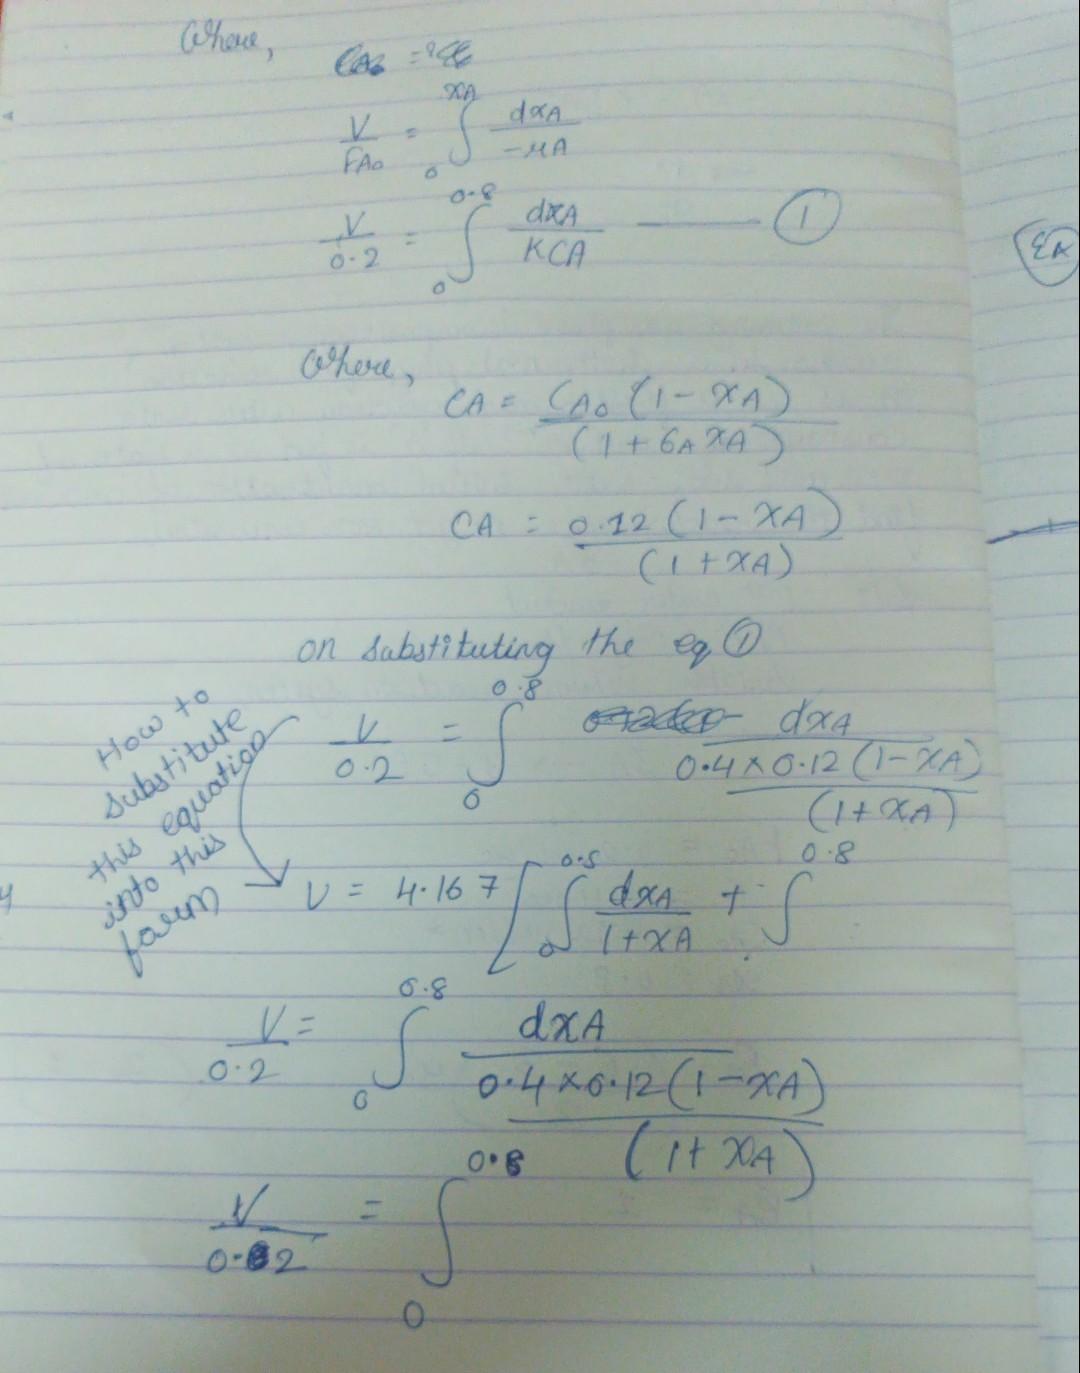 Where,
V/FA0 = ∫ 0 xA dxA/-rA
V/0.2 = ∫ 0 0.8 dxA/KCA ——— 1
εA
Where,
CA = CA0 (1 - xA)/(1 + εA xA)
CA = 0.12 (1 - xA)/(1 + xA)
on substituting the eq 1
V/0.2 = ∫ 0 0.8 dxA/0.4 × 0.12 (1 - xA)/(1 + xA)
How to
substitute
this equation
into this
form
V = 4.167 [ ∫ 0 0.5 dxA/1 + xA + ∫ 0.8
V/0.2 = ∫ 0 0.8 dxA/0.4 × 0.12 (1 - xA)/(1 + xA)
V/0.2 = ∫ 0 0.8